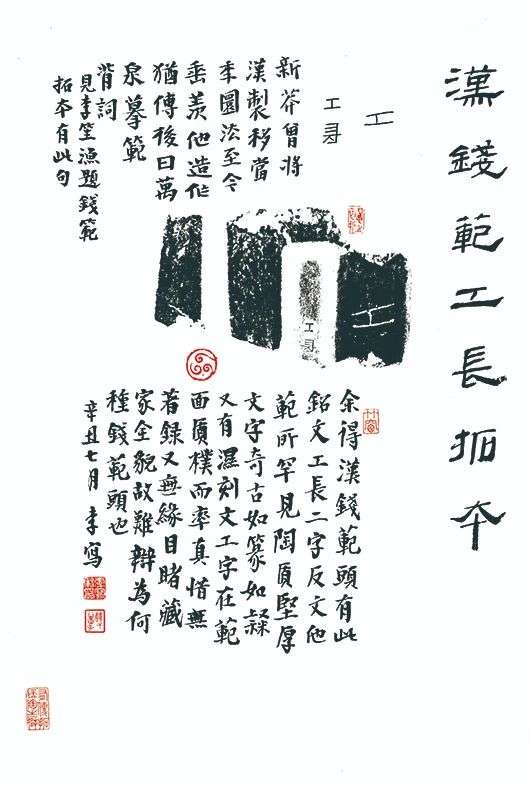 漢錢範工長拓本
工
工長
新莽曾將
漢製移當
年圜法至今
垂羨他造作
猶傳後日萬
泉摹範
背詞
見李笙漁題錢範
拓本有此句
工
工長
余得漢錢範頭有此
銘文工長二字反文他
範所罕見陶質堅厚
文字奇古如篆如隸
又有濕刻文工字在範
面質樸而率真惜無
著録又無緣目睹藏
家全貌故難辯為何
種錢範頭也
辛丑七月李寫